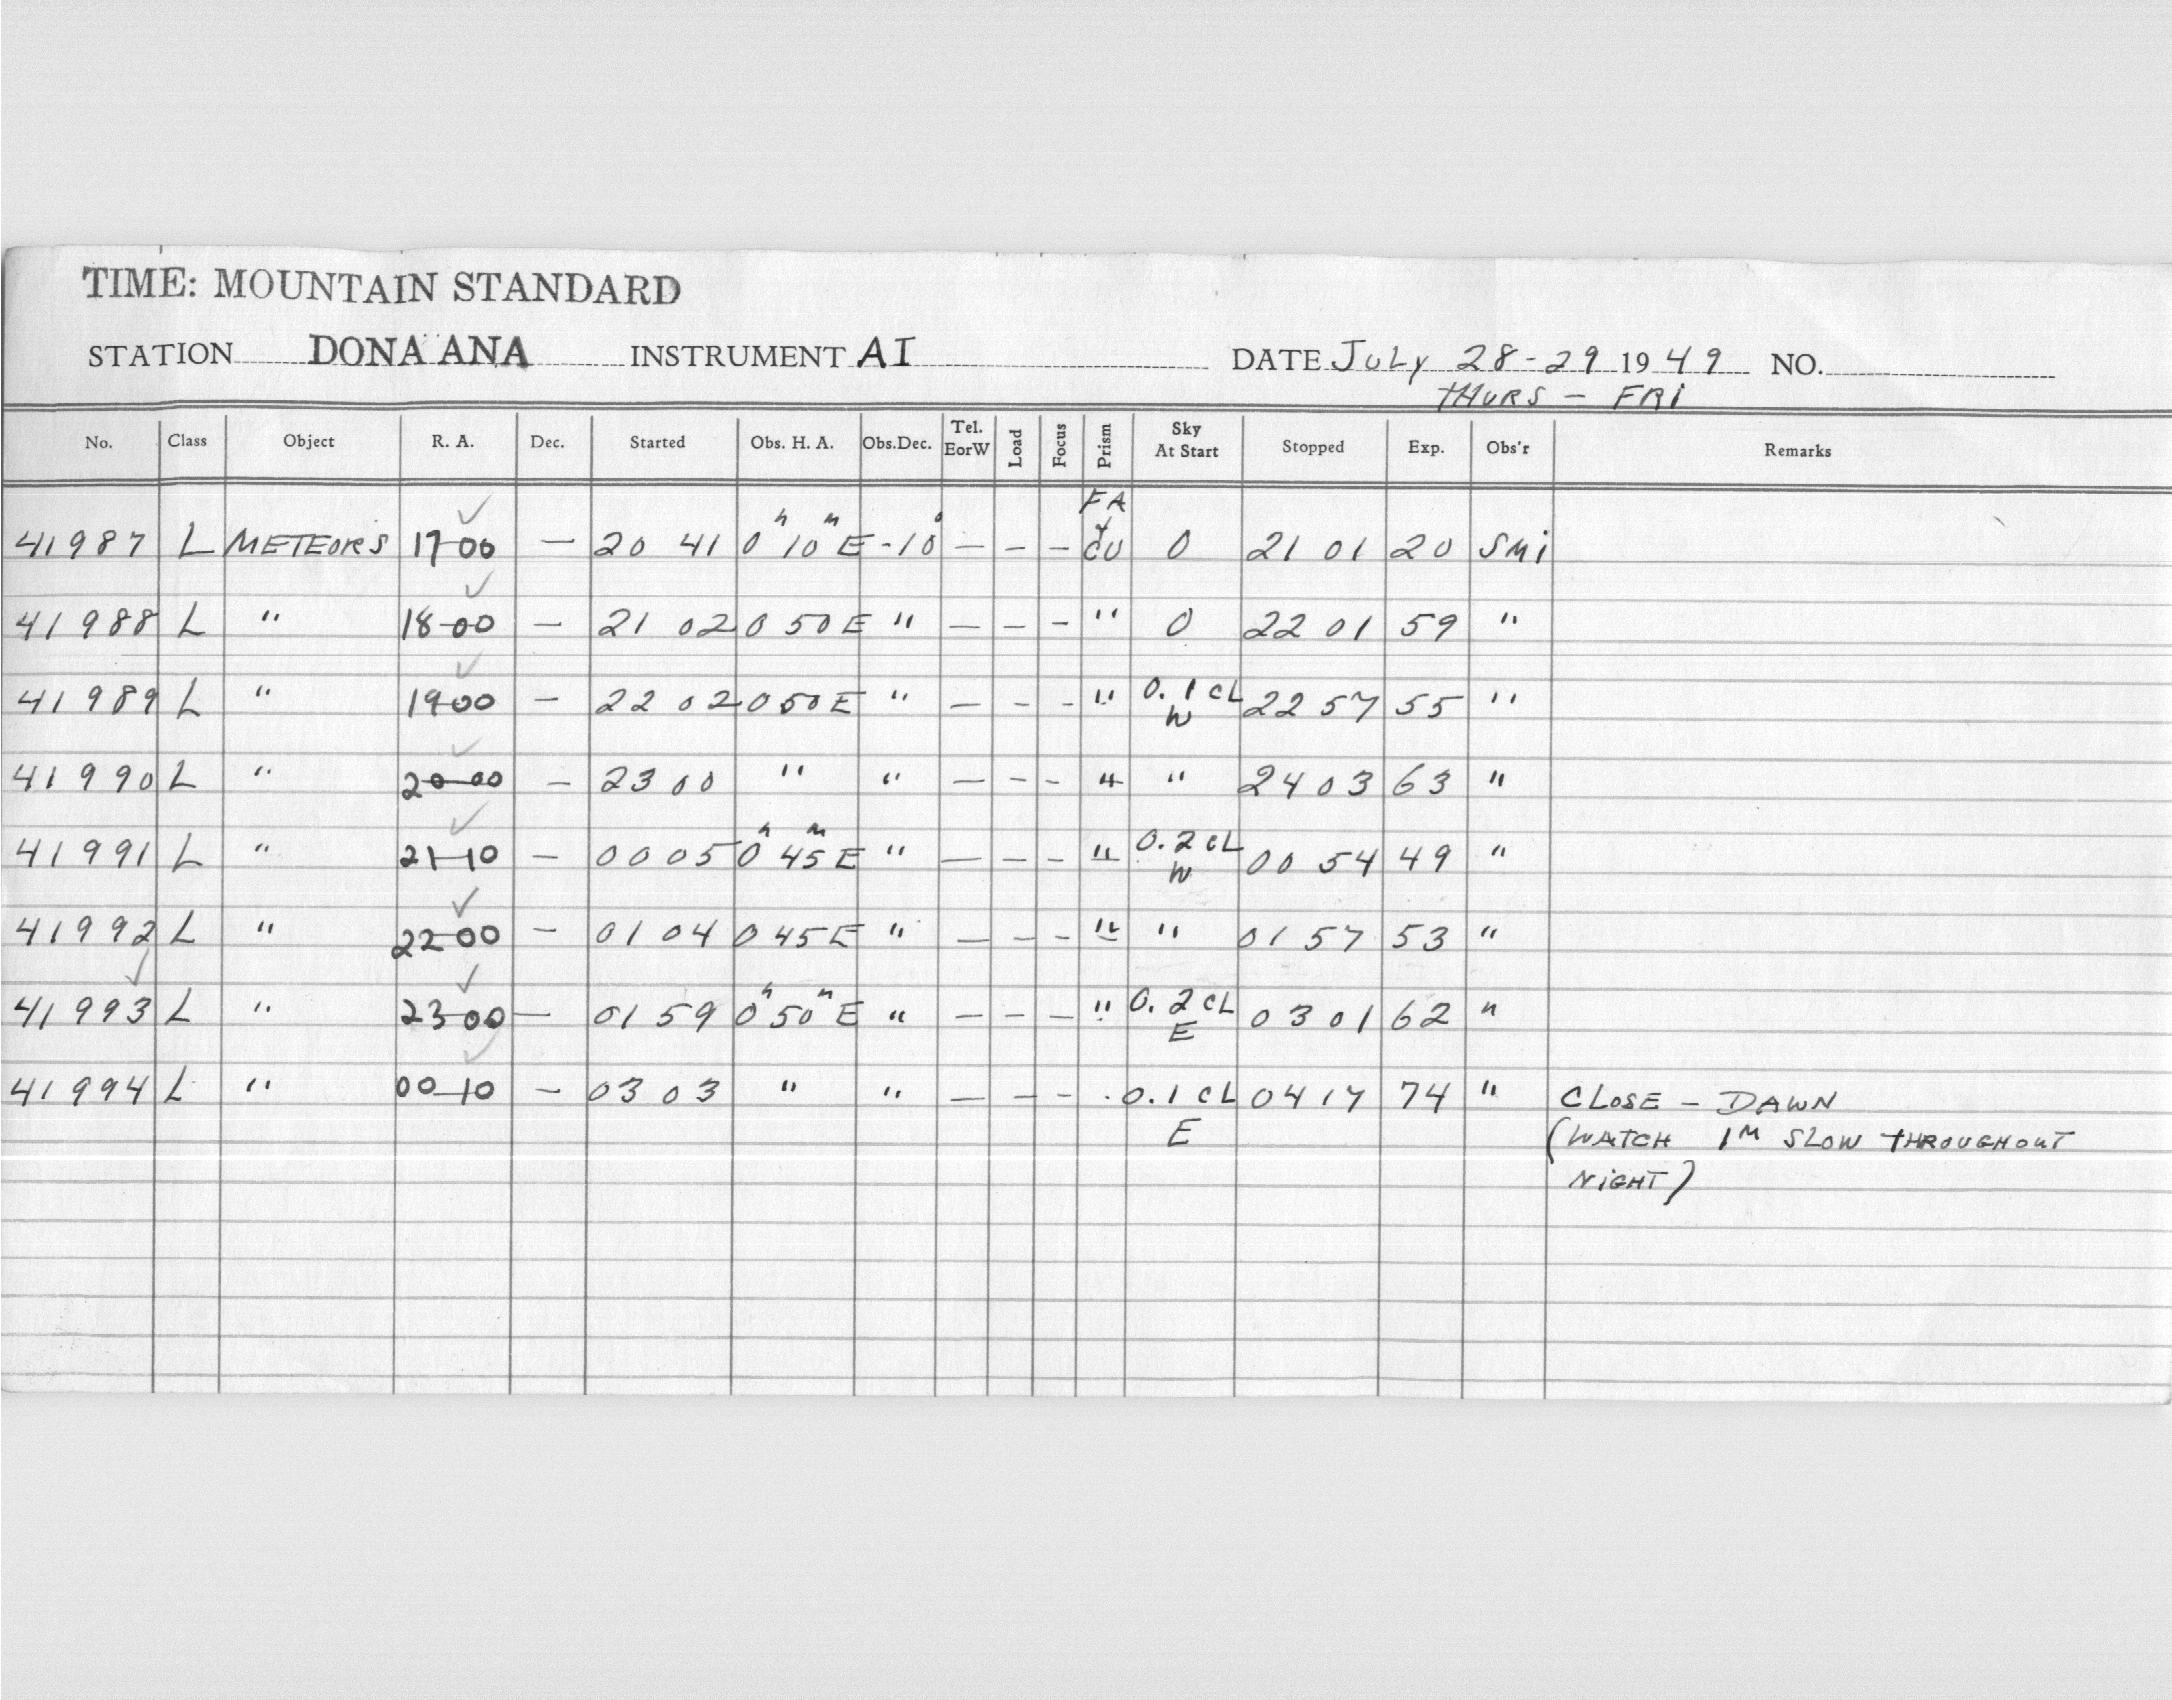 TIME: MOUNTAIN STANDARD
STATION DONA ANA INSTRUMENT AI DATE JULY 28-29 1949 NO.
THURS - FRI
No. Class Object R. A. Dec. Started Obs. H. A. Obs.Dec. Tel. EorW Load Focus Prism Sky At Start Stopped Exp. Obs'r Remarks
41987 L METEORS 17-00 — 20 41 0h 10m E -10° — — — FA CU 0 21 01 20 SMi
41988 L " 18-00 — 21 02 0 50 E " — — — " 0 22 01 59 "
41989 L " 19-00 — 22 02 0 50 E " — — — " 0.1 CL W 22 57 55 "
41990 L " 20-00 — 23 00 " " — — — " " 24 03 63 "
41991 L " 21-10 — 00 05 0h 45m E " — — — " 0.2 CL W 00 54 49 "
41992 L " 22-00 — 01 04 0 45 E " — — — " " 01 57 53 "
41993 L " 23-00 — 01 59 0h 50m E " — — — " 0.2 CL E 03 01 62 "
41994 L " 00-10 — 03 03 " " — — — 0.1 CL E 04 17 74 " CLOSE - DAWN
(WATCH 1M SLOW THROUGHOUT
NIGHT)